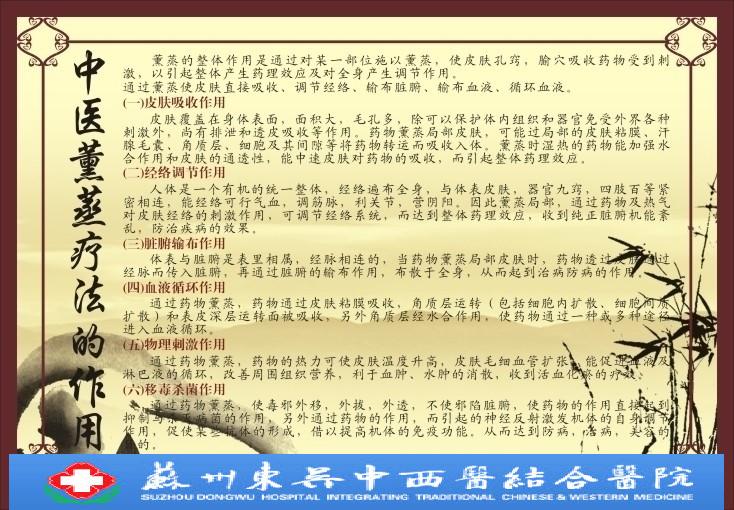 中医薰蒸疗法的作用
薰蒸的整体作用是通过对某一部位施以薰蒸，使皮肤孔窍，腧穴吸收药物受到刺
激，以引起整体产生药理效应及对全身产生调节作用。
通过薰蒸使皮肤直接吸收、调节经络、输布脏腑、输布血液、循环血液。
(一)皮肤吸收作用
皮肤覆盖在身体表面，面积大，毛孔多，除可以保护体内组织和器官免受外界各种
刺激外，尚有排泄和透皮吸收等作用。药物薰蒸局部皮肤，可能过局部的皮肤粘膜、汗
腺毛囊、角质层、细胞及其间隙等将药物转运而吸收入体。薰蒸时湿热的药物能加强水
合作用和皮肤的通透性，能中速皮肤对药物的吸收，而引起整体药理效应。
(二)经络调节作用
人体是一个有机的统一整体，经络遍布全身，与体表皮肤，器官九窍，四肢百等紧
密相连，能经络可行气血，调筋脉，利关节，营阴阳。因此薰蒸局部，通过药物及热气
对皮肤经络的刺激作用，可调节经络系统，而达到整体药理效应，收到纯正脏腑机能紊
乱，防治疾病的效果。
(三)脏腑输布作用
体表与脏腑是表里相属，经脉相连的，当药物薰蒸局部皮肤时，药物透过皮肤通过
经脉而传入脏腑，再通过脏腑的输布作用，布散于全身，从而起到治病防病的作用。
(四)血液循环作用
通过药物薰蒸，药物通过皮肤粘膜吸收，角质层运转（包括细胞内扩散、细胞间质
扩散）和表皮深层运转面被吸收，另外角质层经水合作用，使药物通过一种或多种途径
进入血液循环。
(五)物理刺激作用
通过药物薰蒸，药物的热力可使皮肤温度升高，皮肤毛细血管扩张，能促进血液及
淋巴液的循环，改善周围组织营养，利于血肿、水肿的消散，收到活血化瘀的疗效。
(六)移毒杀菌作用
通过药物薰蒸，使毒邪外移，外拔，外透，不使邪陷脏腑，使药物的作用直接起到
抑制与杀灭病菌的作用，另外通过药物的作用，而引起的神经反射激发机体的自身调节
作用，促使某些抗体的形成，借以提高机体的免疫功能。从而达到防病，治病，美容的
目的。
蘇州東吳中西醫結合醫院
SUZHOU DONGWU HOSPITAL INTEGRATING TRADITIONAL CHINESE & WESTERN MEDICINE